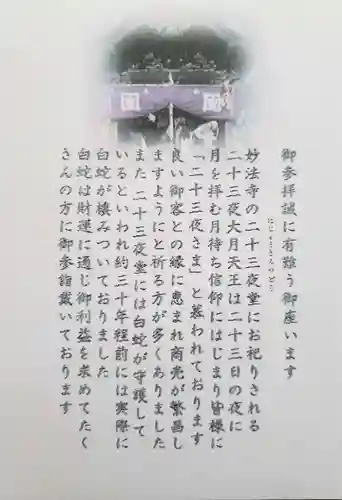 御参拝誠に有難う御座います
にじゅうさんやどう
妙法寺の二十三夜堂にお祀りされる
二十三夜大月天王は二十三日の夜に
月を拝む月待ち信仰にはじまり皆様に
「二十三夜さま」と慕われております
良い御客との縁に恵まれ商売が繁昌し
ますようにと祈る方が多くありました
また二十三夜堂には白蛇が守護して
いるといわれ約三十年程前には実際に
白蛇が棲みついておりました
白蛇は財運に通じ御利益を求めてたく
さんの方に御参詣戴いております